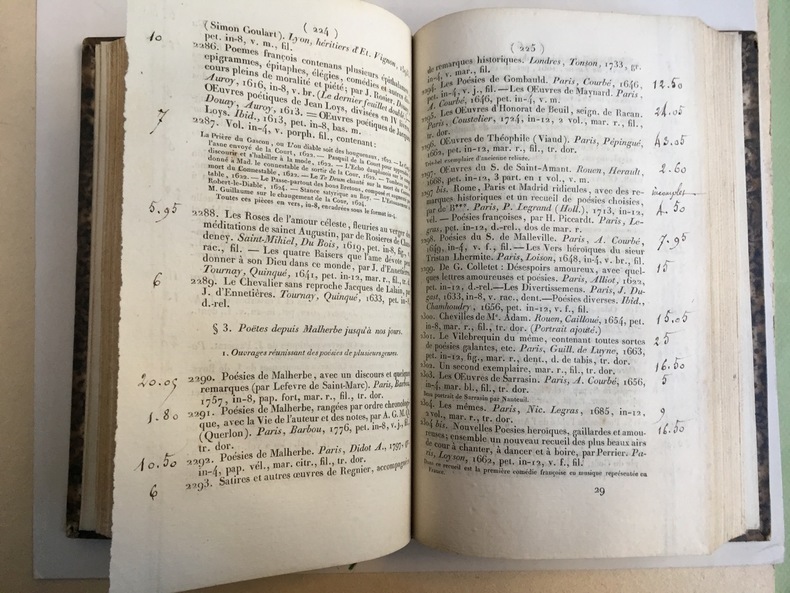 ( 224 )
(Simon Goulart). Lyon, héritiers d'Et. Vignon,
pet. in-8, v. m., fil.
10
2286. Poemes françois contenans plusieurs épithalames,
epigrammes, épitaphes, élégies, comédies et autres
cours pleins de moralité et piété; par J. Rosier.
Auroy, 1616, in-8, v. br. (Le dernier feuillet
OEuvres poëtiques de Jean Loys, divisées en IV
Douay, Auroy, 1613. = OEuvres poétiques de
Loys. Ibid., 1613, pet. in-8, bas. m.
7
2287. Vol. in-4, v. porph. fil., contenant:
La Prière du Gascon, ou L'on diable soit des hougounaux, 1622.
l'asne envoyé de la Court, 1622. — Pasquil de la Court pour apprendre à
discourir et s'habiller à la mode, 1622. — L'Echo
donné à Mad. le connestable de sortir de la Cour, 1622. — Tombeau
mort du Connestable, 1622. — Le Te Deum chanté sur la mort du
table, 1622. — Le Passe-partout des bons Bretons,
Robert-le-Diable, 1624. — Stance satyrique au Roy.
M. Guillaume sur le changement de la Cour, 1624.
Toutes ces pièces en vers, in-8, encadrées sous le format in-4.
5.95
2288. Les Roses de l'amour céleste, fleuries au verger des
méditations de sainct Augustin, par de Rosières de
deney. Saint-Mihiel, Du Bois, 1619, pet. in-8, fig., v.
rac., fil. — Les quatre Baisers que l'ame dévote peut
donner à son Dieu dans ce monde, par J. d'Ennetières.
Tournay, Quinqué, 1641, pet. in-12, mar. r., fil., tr. d.
6
2289. Le Chevalier sans reproche Jacques de Lalain, par
J. d'Ennetières. Tournay, Quinqué, 1633, pet. in-8,
d.-rel.
§ 3. Poëtes depuis Malherbe jusqu'à nos jours.
1. Ouvrages réunissant des poésies de plusieurs genres.
20.05
2290. Poésies de Malherbe, avec un discours et quelques
remarques (par Lefevre de Saint-Marc). Paris, Barbou,
1757, in-8, pap. fort, mar. r., fil., tr. dor.
1.80
2291. Poésies de Malherbe, rangées par ordre chronologique,
que, avec la Vie de l'auteur et des notes, par A. G. M. Q.
(Querlon). Paris, Barbou, 1776, pet. in-8, v. j., fil.,
tr. dor.
10.50
2292. Poésies de Malherbe. Paris, Didot A., 1797,
in-4, pap. vél., mar. citr., fil., tr. dor.
6
2293. Satires et autres œuvres de Regnier, accompagnées
( 225 )
de remarques historiques. Londres, Tonson, 1733, gr.
in-4, v. mar., fil.
2294. Les Poésies de Gombauld. Paris, Courbé, 1646,
pet. in-4, v. j., fil. — Les OEuvres de Maynard. Paris,
A. Courbé, 1646, pet. in-4, v. m.
12.50
2295. Les OEuvres d'Honorat de Beuil, seign. de Racan.
Paris, Coustelier, 1724, in-12, 2 vol., mar. r., fil.,
tr. dor.
24.05
2296. OEuvres de Théophile (Viaud). Paris, Pépingué,
1662, pet. in-12, mar. r., fil., tr. dor.
43.05
Très-bel exemplaire d'ancienne reliure.
2297. OEuvres du S. de Saint-Amant. Rouen, Herault,
1668, pet. in-12, 3 part. en 1 vol., v. m.
2.60
2297 bis. Rome, Paris et Madrid ridicules, avec des remarques
historiques et un recueil de poésies choisies,
par de B***. Paris, P. Legrand (Holl.), 1713, in-12,
vél. — Poésies françoises, par H. Piccardt. Paris, Legras,
pet. in-12, d.-rel., dos de mar. r.
incomplet
4.50
2298. Poésies du S. de Malleville. Paris, A. Courbé,
1649, in-4, v. f., fil. — Les Vers héroïques du sieur
Tristan Lhermite. Paris, Loison, 1648, in-4, v. br., fil.
7.95
2299. De G. Colletet : Désespoirs amoureux, avec quelques
lettres amoureuses et poésies. Paris, Alliot, 1622,
pet. in-12, d.-rel.—Les Divertissemens. Paris, J. Dugast,
1633, in-8, v. rac., dent.—Poésies diverses. Ibid.,
Chamhoudry, 1656, pet. in-12, v. f., fil.
15
2300. Chevilles de Me. Adam. Rouen, Cailloué, 1654, pet.
in-8, mar. r., fil., tr. dor. (Portrait ajouté.)
15.05
2301. Le Vilebrequin du même, contenant toutes sortes
de poésies galantes, etc. Paris, Guill. de Luyne, 1663,
pet. in-12, fig., mar. r., dent., d. de tabis, tr. dor.
25
2302. Un second exemplaire, mar. r., fil., tr. dor.
16.50
2303. Les OEuvres de Sarrasin. Paris, A. Courbé, 1656,
in-4, mar. bl., fil., tr. dor.
5
Beau portrait de Sarrasin par Nanteuil.
2304. Les mêmes. Paris, Nic. Legras, 1685, in-12,
2 vol., mar. r., tr. dor.
9
2304 bis. Nouvelles Poésies heroiques, gaillardes et amoureuses;
ensemble un nouveau recueil des plus beaux airs
de cour à chanter, à dancer et à boire, par Perrier. Paris,
Loyson, 1662, pet. in-12, v. f., fil.
16.50
Dans ce recueil est la première comédie françoise en musique représentée en
France.
29